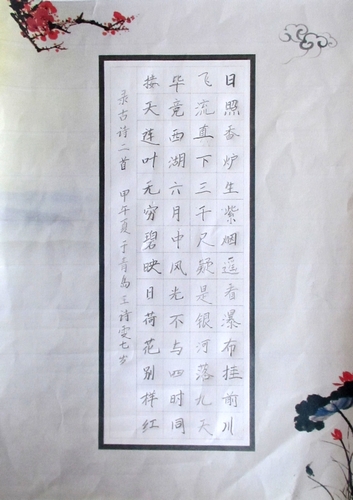 日照香炉生紫烟遥看瀑布挂前川
飞流直下三千尺疑是银河落九天
毕竟西湖六月中风光不与四时同
接天莲叶无穷碧映日荷花别样红
录古诗二首 甲午夏于青岛王诗雯七岁